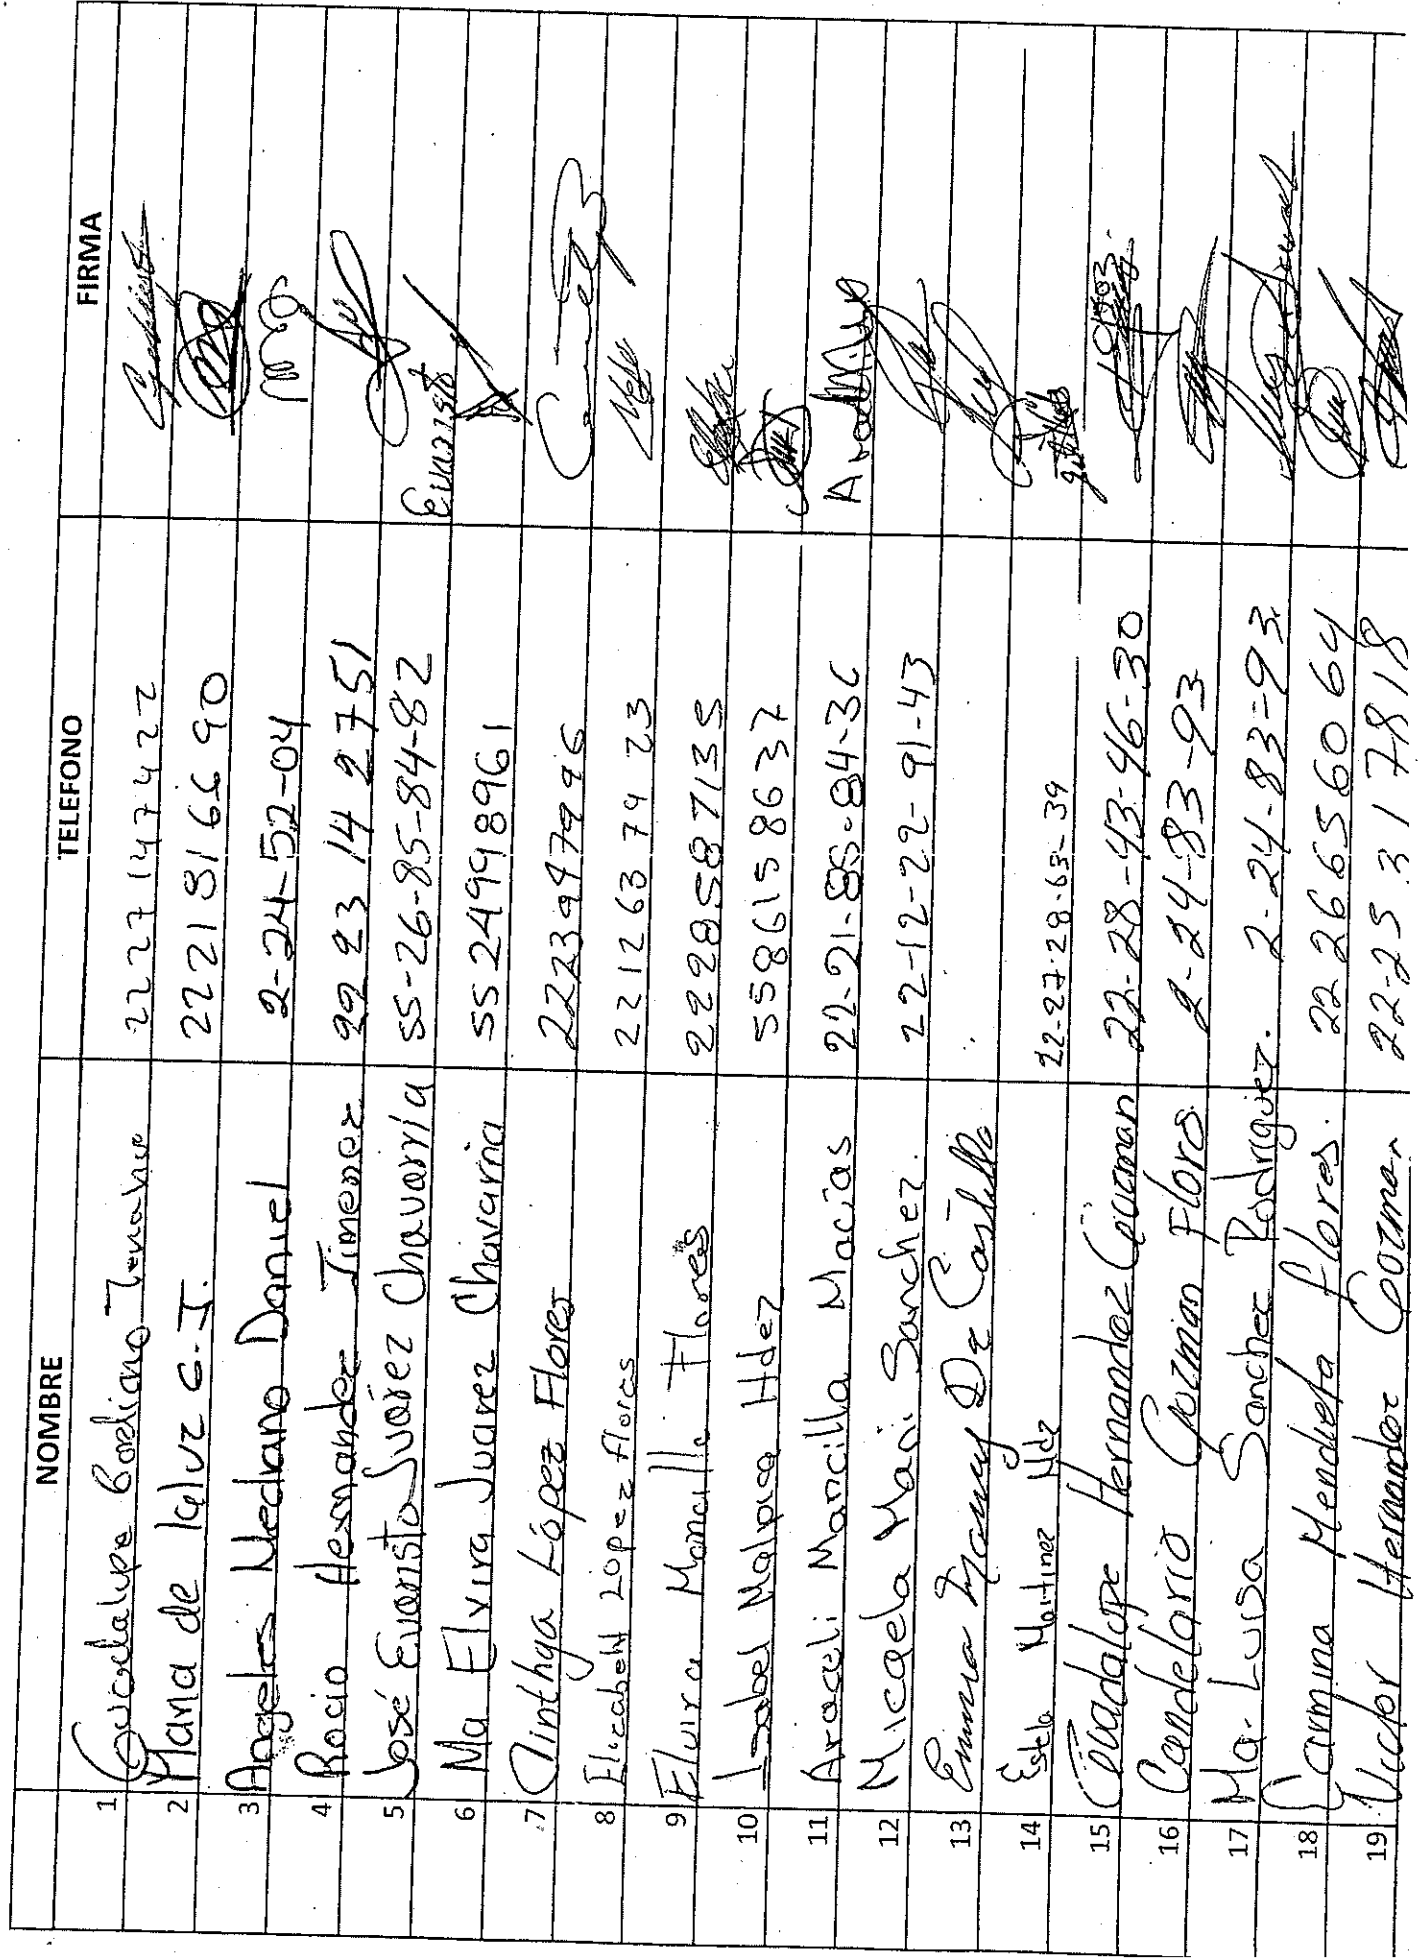 NOMBRE TELEFONO FIRMA
1 Guadalupe Gordiano 2227147422
2 Maria de la luz G. I. 2221816690
3 Angeles Medrano Daniel 2-24-52-04
4 Rocio Hernandez Jimenez 22 23 14 2751
5 José Evaristo Juárez Chavarría 55-26-85-84-82 Evarist
6 Ma Elvira Juarez Chavarria 5524998961
7 Cinthya López Flores 2223947996
8 Elizabeht Lopez flores 22 12 63 74 23
9 Elvira Mancilla Flores 2228587135
10 Isabel Malpica Hdez 5586158637
11 Araceli Mancilla Macías 22-21-85-84-36
12 Micaela Mani Sanchez. 22-12-22-91-43
13 Emma De Castillo
14 Estela Martinez Mdz 22-27-28-63-39
15 Guadalupe Hernandez Guzman 22-28-43-46-30
16 Candelario Guzman Flores 2-24-83-93
17 Ma. Luisa Sanchez Rodriguez. 2-24-83-93.
18 Carmina Mendieta flores. 2226656064
19 Victor Hernandez Guzman 22-25 31 7818